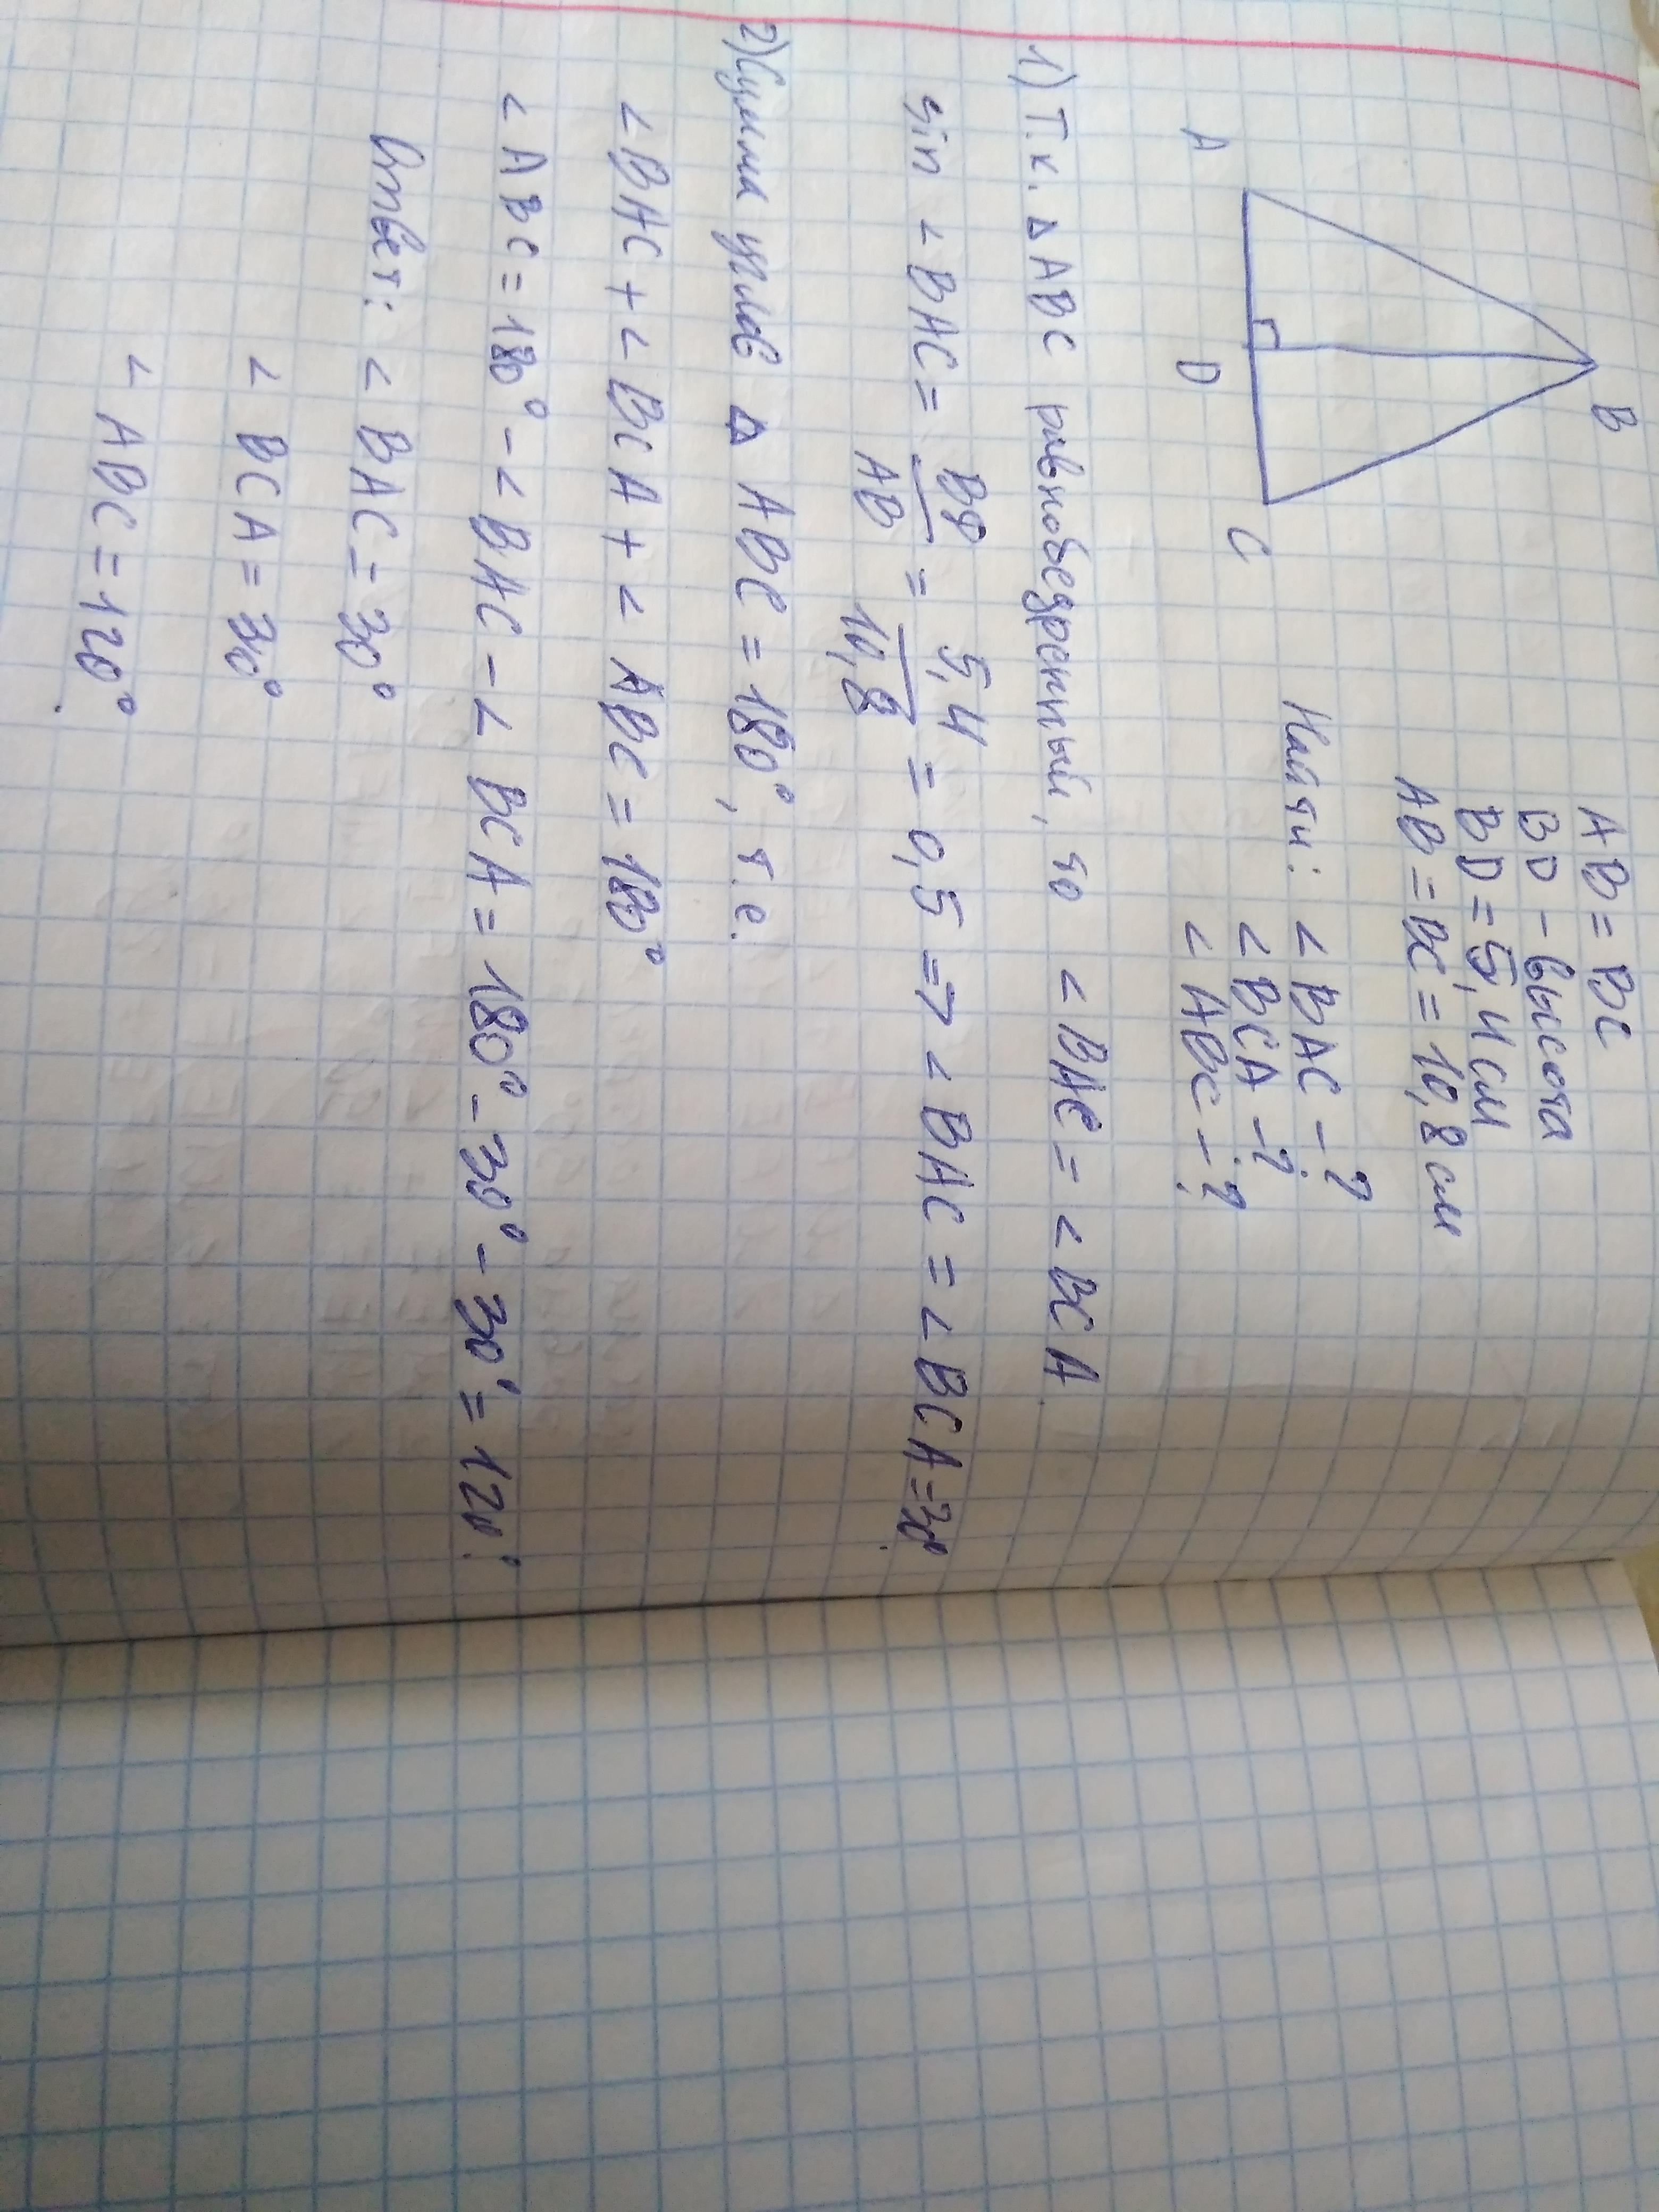 AB = BC
BD - высота
BD = 5,4 см
AB = BC = 10,8 см
Найти: ∠BAC - ?
∠BCA - ?
∠ABC - ?
B
A
D
C
1) Т.к. △ABC равнобедренный, то ∠BAC = ∠BCA
sin ∠BAC = BD/AB = 5,4/10,8 = 0,5 => ∠BAC = ∠BCA = 30°.
2) Сумма углов △ABC = 180°, т.е.
∠BAC + ∠BCA + ∠ABC = 180°
∠ABC = 180° - ∠BAC - ∠BCA = 180° - 30° - 30° = 120°.
Ответ: ∠BAC = 30°
∠BCA = 30°
∠ABC = 120°.